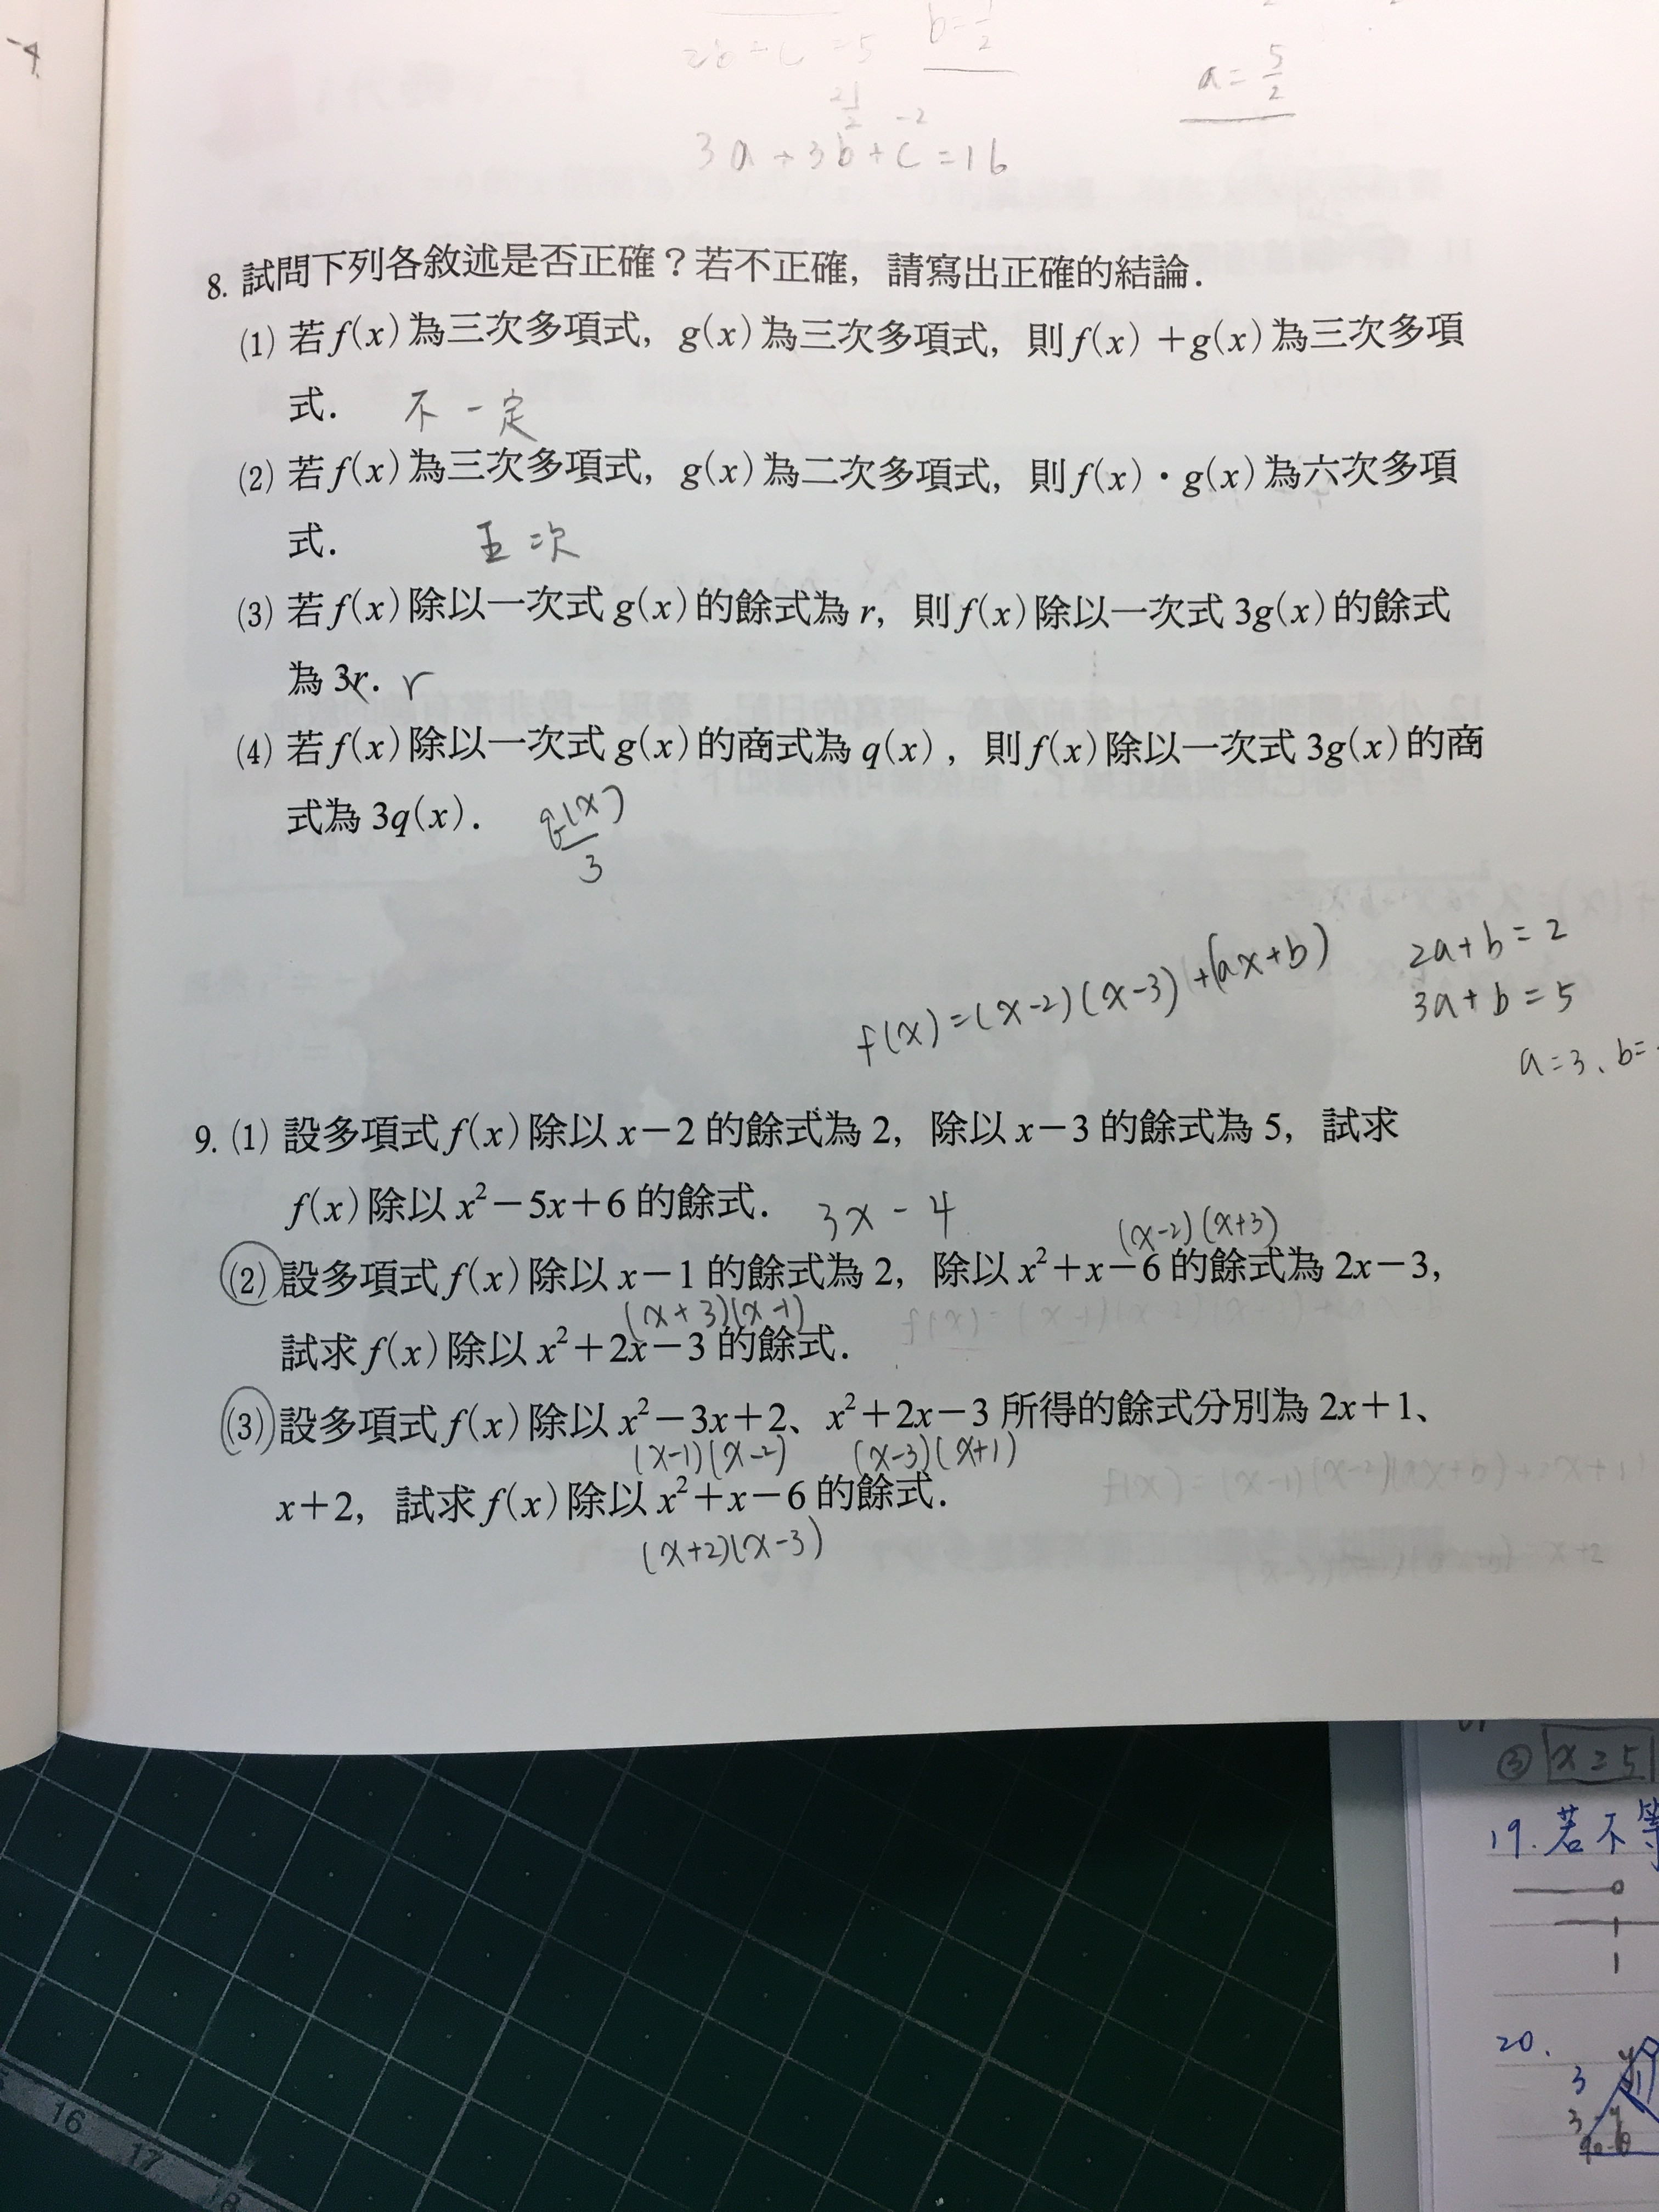 -4
2b+c=5
b=1/2
a=5/2
21/2
-2
3a+3b+c=16
8. 試問下列各敘述是否正確？若不正確，請寫出正確的結論．
(1) 若 f(x) 為三次多項式，g(x) 為三次多項式，則 f(x)+g(x) 為三次多項
式．　不一定
(2) 若 f(x) 為三次多項式，g(x) 為二次多項式，則 f(x)・g(x) 為六次多項
式．　五次
(3) 若 f(x) 除以一次式 g(x) 的餘式為 r，則 f(x) 除以一次式 3g(x) 的餘式
為 3r．r
(4) 若 f(x) 除以一次式 g(x) 的商式為 q(x)，則 f(x) 除以一次式 3g(x) 的商
式為 3q(x)．　q(x)/3
f(x)=(x-2)(x-3)+(ax+b)
2a+b=2
3a+b=5
a=3、b=
9. (1) 設多項式 f(x) 除以 x－2 的餘式為 2，除以 x－3 的餘式為 5，試求
f(x) 除以 x²－5x＋6 的餘式．　3x-4
(x-2)(x+3)
(2) 設多項式 f(x) 除以 x－1 的餘式為 2，除以 x²＋x－6 的餘式為 2x－3，
(x+3)(x-1)
試求 f(x) 除以 x²＋2x－3 的餘式．
(3) 設多項式 f(x) 除以 x²－3x＋2、x²＋2x－3 所得的餘式分別為 2x＋1、
(x-1)(x-2)　(x-3)(x+1)
x＋2，試求 f(x) 除以 x²＋x－6 的餘式．
(x+2)(x-3)
③ x≥5
19. 若不等
1
20.
3
16
17
18